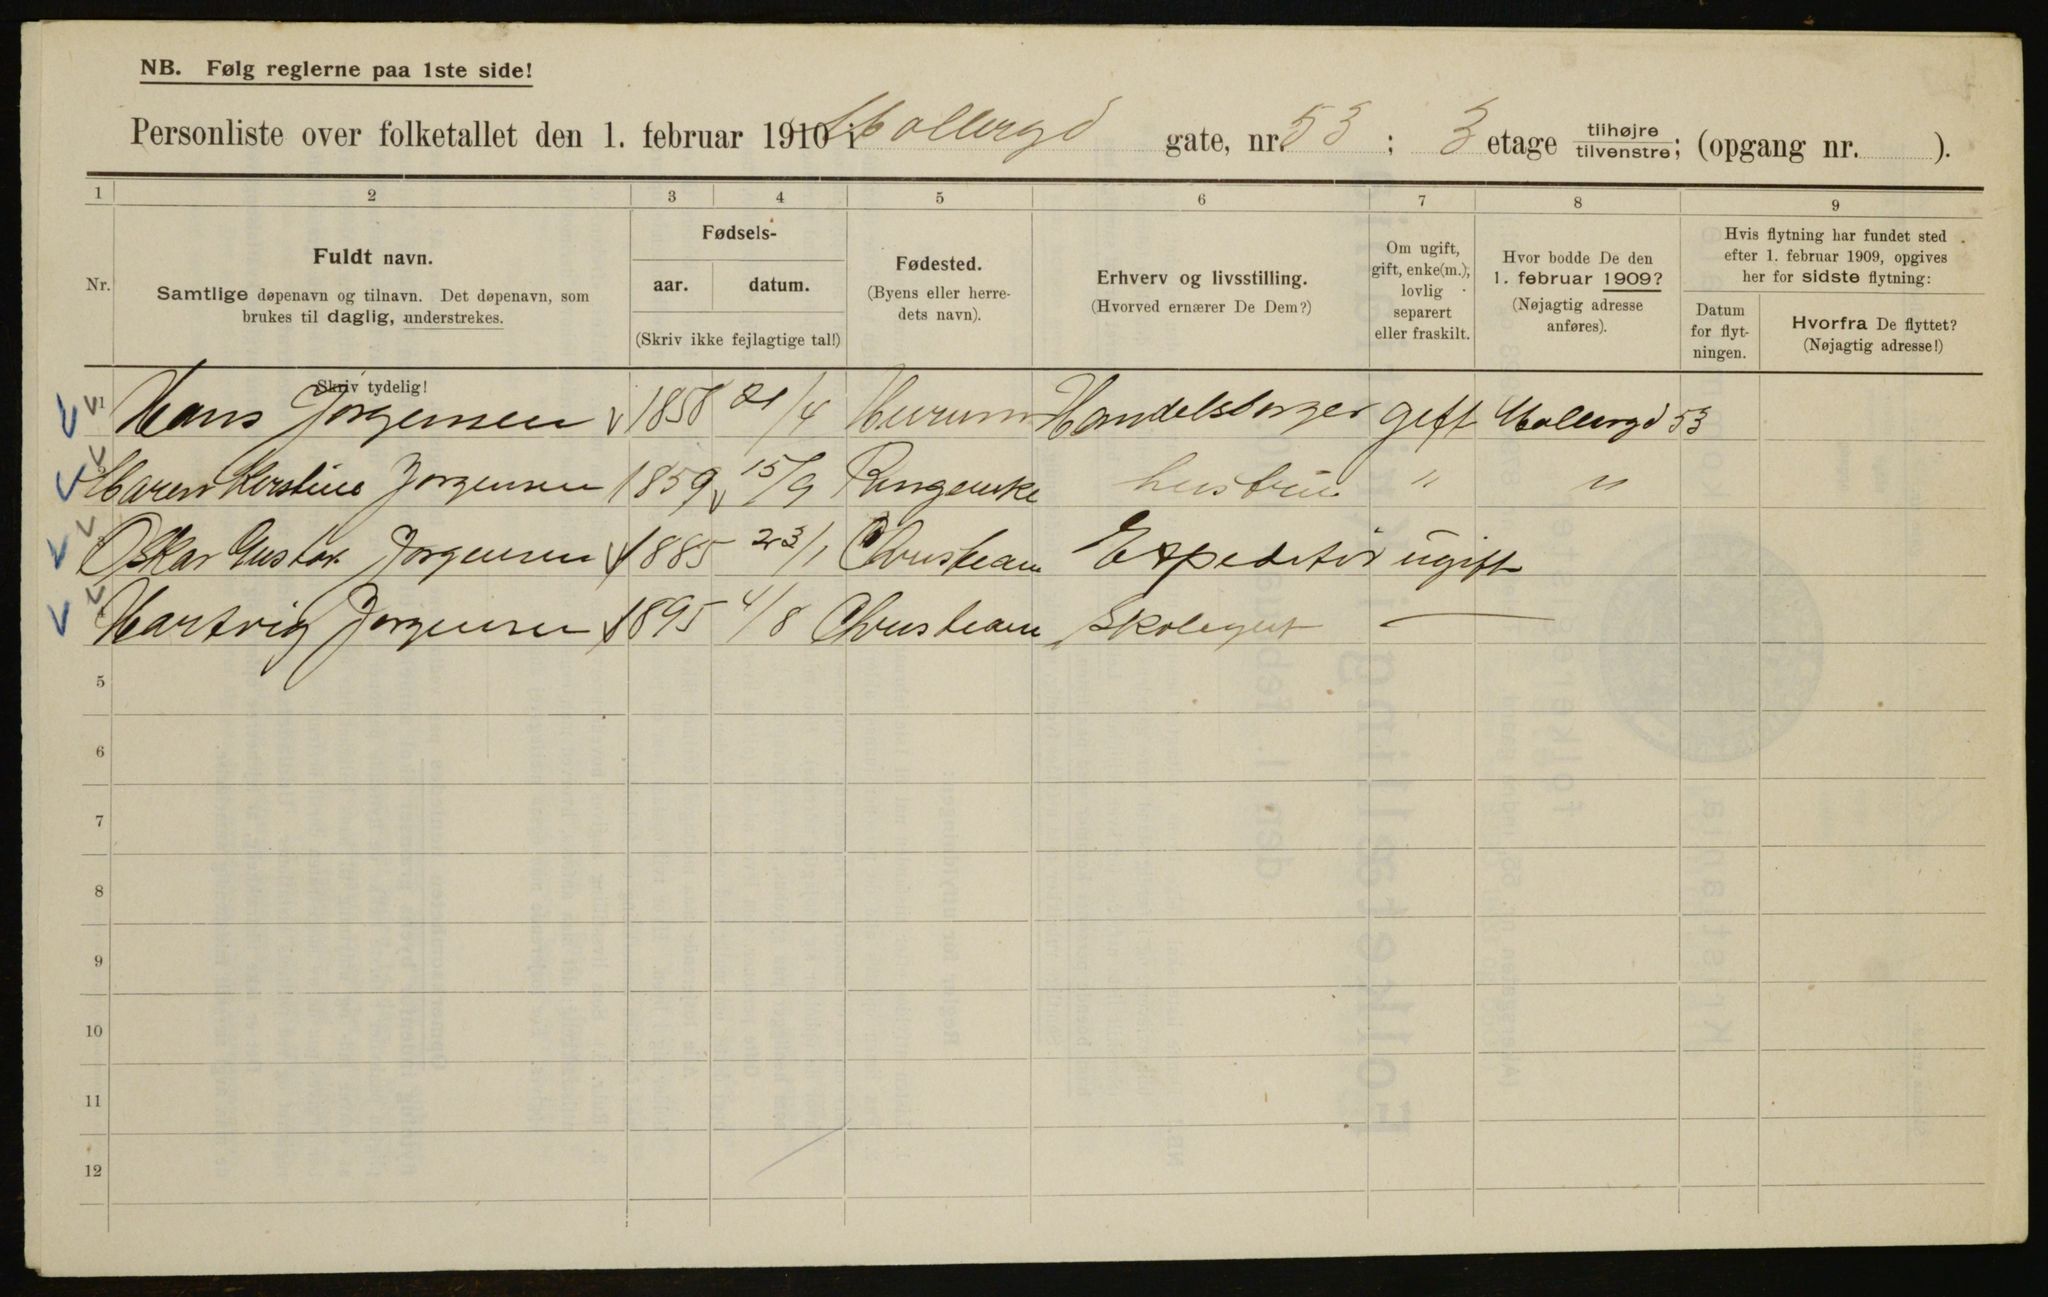 NB. Følg reglerne paa 1ste side!
Personliste over folketallet den 1. februar 1910 i Mollergd gate, nr. 53 ; 3 etage tilhøjre/tilvenstre; (opgang nr. ).
1 2 3 4 5 6 7 8 9
Nr.
Fuldt navn.
Samtlige døpenavn og tilnavn. Det døpenavn, som
brukes til daglig, understrekes.
Skriv tydelig!
Fødsels-
aar. datum.
(Skriv ikke fejlagtige tal!)
Fødested.
(Byens eller herre-
dets navn).
Erhverv og livsstilling.
(Hvorved ernærer De Dem?)
Om ugift,
gift, enke(m.),
lovlig
separert
eller fraskilt.
Hvor bodde De den
1. februar 1909?
(Nøjagtig adresse
anføres).
Hvis flytning har fundet sted
efter 1. februar 1909, opgives
her for sidste flytning:
Datum
for flyt-
ningen.
Hvorfra De flyttet?
(Nøjagtig adresse!)
1 Hans Jorgensen 1858 21/4 Hurum Handelsborger gift Mollergd 53
Maren Kirstine Jorgensen 1859 15/9 Ringerike hustru " "
Oskar Gustav Jorgensen 1885 23/1 Christiania Expeditør ugift
Hartvig Jorgensen 1895 4/8 Christiania Skolegut —
5
6
7
8
9
10
11
12